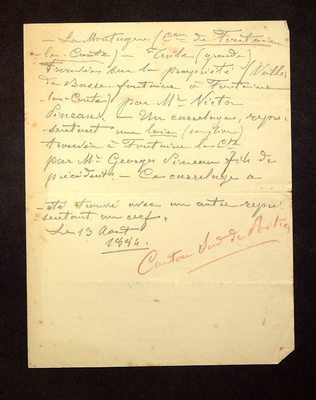 - La Matugene (Cne de Fontaine
-le-Comte) - Tuile (grande)
trouvée sur la propriété (Vallée
de Basse-fontaine à Fontaine
-le-Comte) par Mr Victor
Pineau. - Un carrelage, repré-
sentant une (sanglier)
trouvée à Fontaine le Cte
par Mr Georges Pineau fils de
précédent. - Ce carrelage a
-été trouvé avec un autre repré-
sentant un cerf.
Le 13 Août
1884.
Canton Sud de Poitiers